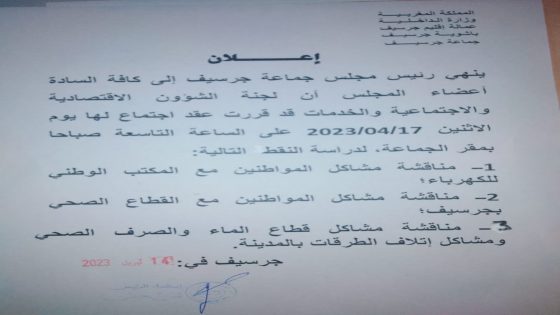 المملكة المغربية
وزارة الداخلية
عمالة إقليم جرسيف
باشوية جرسيف
جماعة جرسيف
إعــــلان
ينهي رئيس مجلس جماعة جرسيف إلى كافة السادة
أعضاء المجلس أن لجنة الشؤون الاقتصادية
والاجتماعية والخدمات قد قررت عقد اجتماع لها يوم
الاثنين 2023/04/17 على الساعة التاسعة صباحا
بمقر الجماعة، لدراسة النقط التالية:
1_ مناقشة مشاكل المواطنين مع المكتب الوطني
للكهرباء؛
2_ مناقشة مشاكل المواطنين مع القطاع الصحي
بجرسيف؛
3_ مناقشة مشاكل قطاع الماء والصرف الصحي
ومشاكل إتلاف الطرقات بالمدينة.
جرسيف في: 14 أبريل 2023